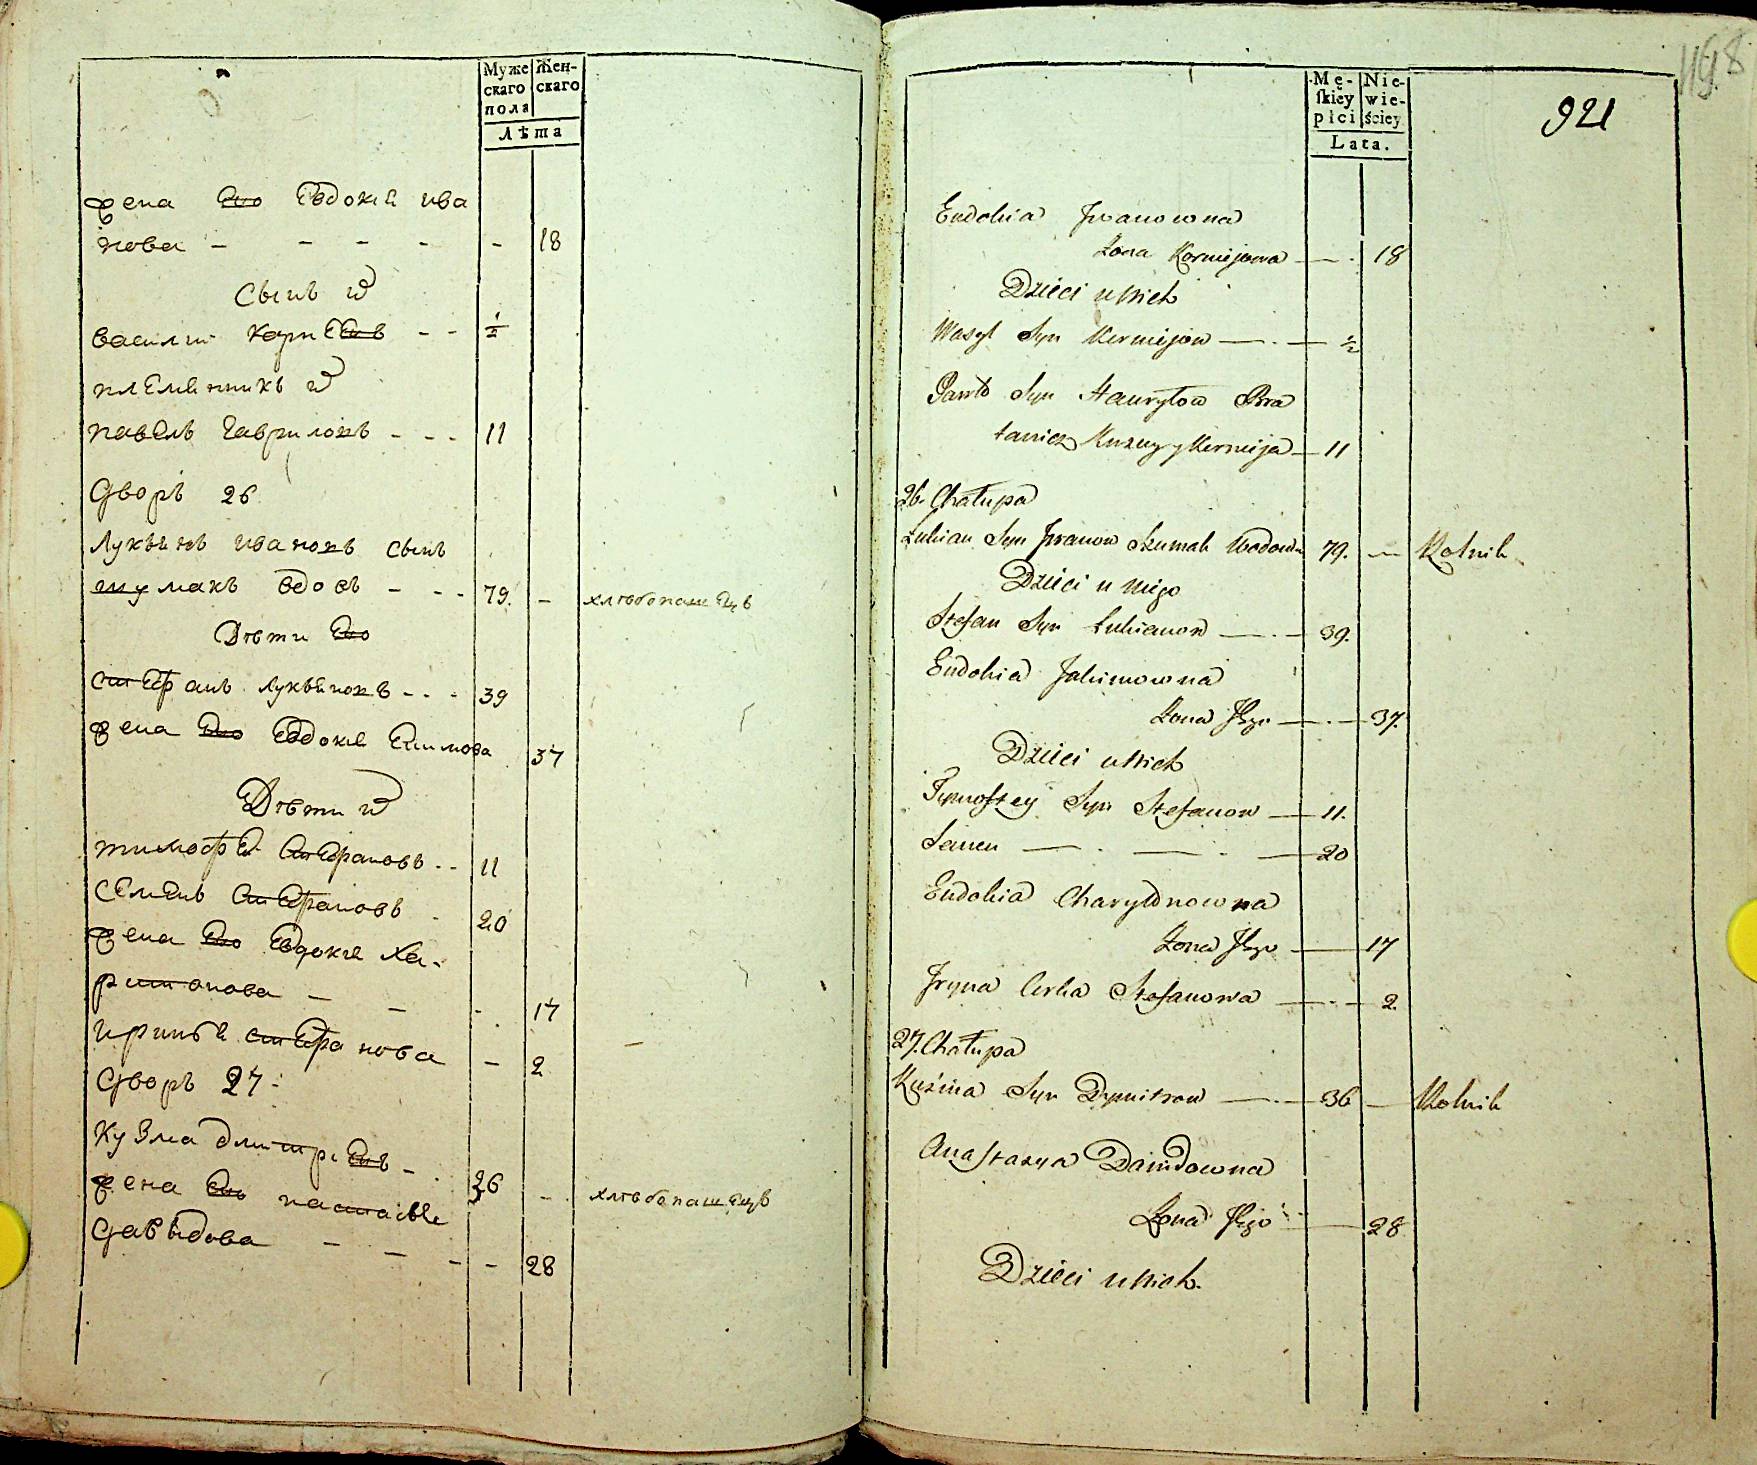 Муже
скаго
пола
Жен-
скаго
Лѣта
жена его Евдокия ива
нова - - - - - 18
Сынъ их
василий корнеевъ - - ½
племянникъ их
павелъ гавриловъ - - - 11
Дворъ 26
Лукьянъ ивановъ сынъ
шумакъ вдовъ - - - 79. - хлѣбопашецъ
Дѣти его
стефанъ лукьяновъ - - - 39
жена его Евдокия Екимова 37
Дѣти их
тимофей стефановъ - - 11
семенъ стефановъ - 20
жена его Евдокия Ха-
ритонова - - - 17
ириня стефанова - 2
Дворъ 27-
Кузма дмитреевъ - 36 - хлѣбопашецъ
жена его настасья
давыдова - - - - 28
198
921
Mę-
skiey
płci
Nie-
wie-
ściey
Lata.
Eudokia Jwanowna
Zona Korniejowa — 18
Dzieci u Nich
Wasyl Syn Korniejow — ½
Pawło Syn Hawryłow Bra
tanicz Kuzmy y Kornieja — 11
26. Chałupa
Łukian Syn Jwanow Szumak Wdowiec 79. — Rolnik
Dzieci u Niego
Stefan Syn Łukianow — 39.
Eudokia Jakimowna
Zona Jego — 37.
Dzieci u Nich
Tymoftey Syn Stefanow — 11.
Semen — 20
Eudokia Charytonowna
Zona Jego — 17
Jryna Corka Stefanowa — 2.
27. Chałupa
Kuźma Syn Dymitrow — 36 — Rolnik
Anastazya Dawidowna
Zona Jego — 28
Dzieci u Nich.